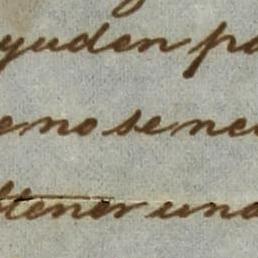 yuden pa
emo se nece
tener una